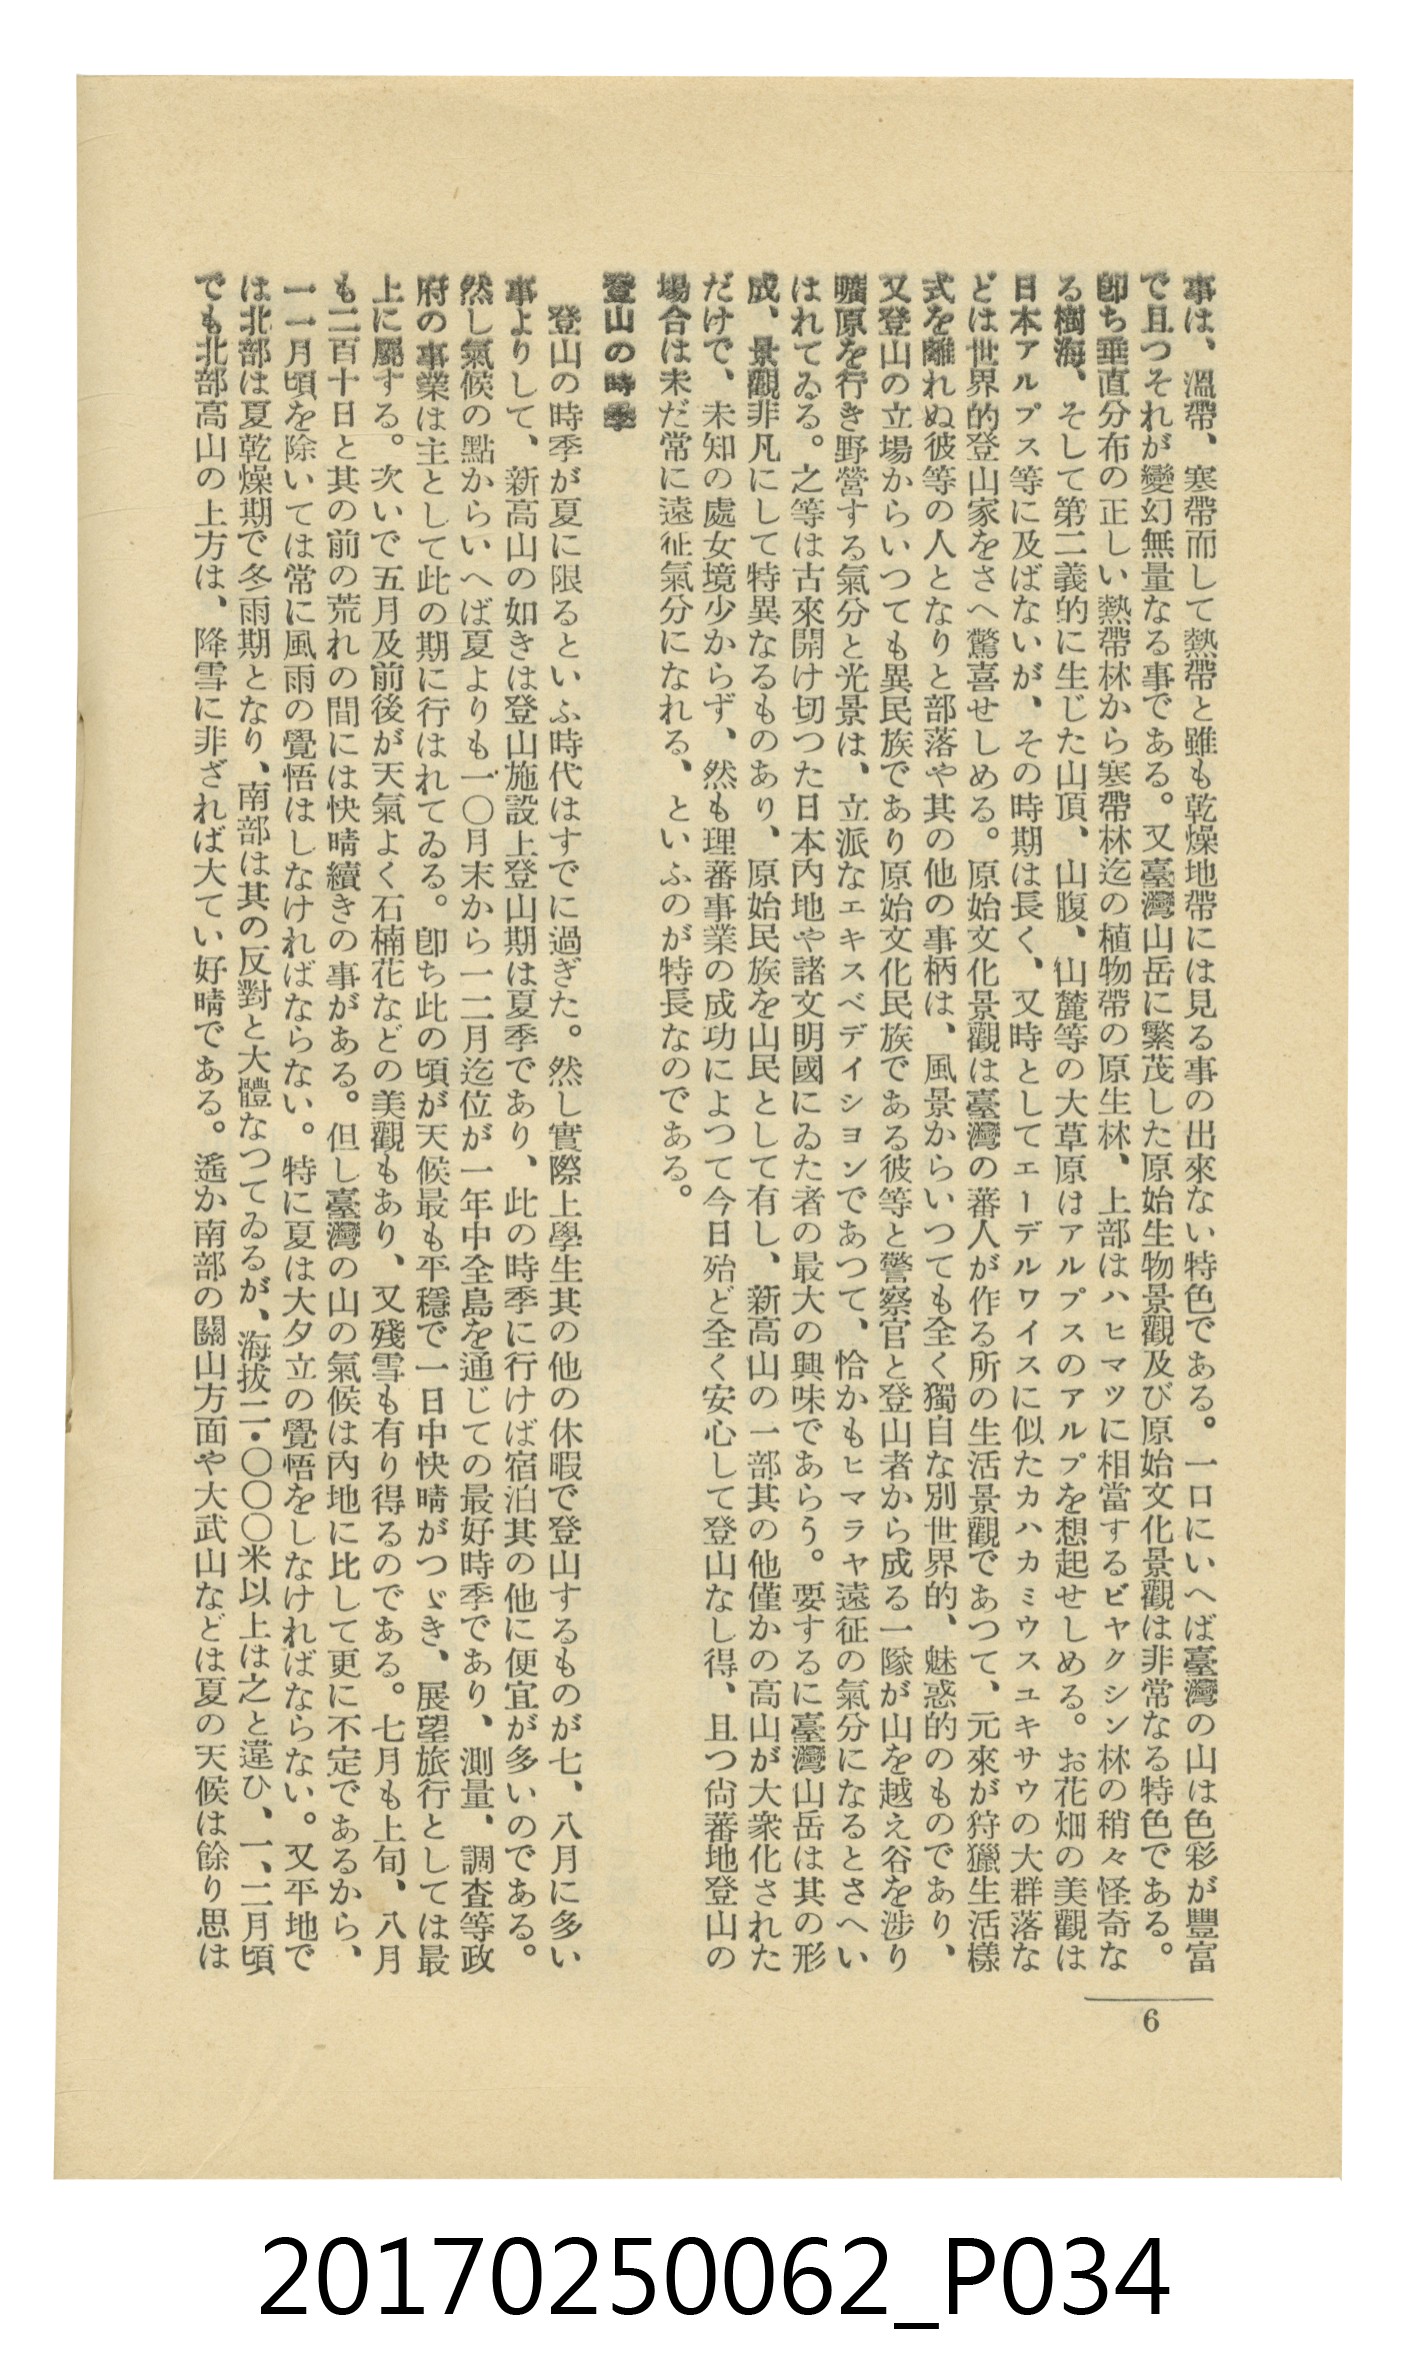 事は、溫帶、寒帶而して熱帶と雖も乾燥地帶には見る事の出來ない特色である。一口にいへば臺灣の山は色彩が豐富
で且つそれが變幻無量なる事である。又臺灣山岳に繁茂した原始生物景觀及び原始文化景觀は非常なる特色である。
卽ち垂直分布の正しい熱帶林から寒帶林迄の植物帶の原生林、上部はハヒマツに相當するビヤクシン林の稍々怪奇な
る樹海、そして第二義的に生じた山頂、山腹、山麓等の大草原はアルプスのアルプを想起せしめる。お花畑の美觀は
日本アルプス等に及ばないが、その時期は長く、又時としてエーデルワイスに似たカハカミウスユキサウの大群落な
どは世界的登山家をさへ驚喜せしめる。原始文化景觀は臺灣の蕃人が作る所の生活景觀であつて、元來が狩獵生活樣
式を離れぬ彼等の人となりと部落や其の他の事柄は、風景からいつても全く獨自な別世界的、魅惑的のものであり、
又登山の立場からいつても異民族であり原始文化民族である彼等と警察官と登山者から成る一隊が山を越え谷を涉り
曠原を行き野營する氣分と光景は、立派なエキスペデイションであつて、恰かもヒマラヤ遠征の氣分になるとさへい
はれてゐる。之等は古來開け切つた日本內地や諸文明國にゐた者の最大の興味であらう。要するに臺灣山岳は其の形
成、景觀非凡にして特異なるものあり、原始民族を山民として有し、新高山の一部其の他僅かの高山が大衆化された
だけで、未知の處女境少からず、然も理蕃事業の成功によつて今日殆ど全く安心して登山なし得、且つ尙蕃地登山の
場合は未だ常に遠征氣分になれる、といふのが特長なのである。
登山の時季
登山の時季が夏に限るといふ時代はすでに過ぎた。然し實際上學生其の他の休暇で登山するものが七、八月に多い
事よりして、新高山の如きは登山施設上登山期は夏季であり、此の時季に行けば宿泊其の他に便宜が多いのである。
然し氣候の點からいへば夏よりも一〇月末から一二月迄位が一年中全島を通じての最好時季であり、測量、調查等政
府の事業は主として此の期に行はれてゐる。卽ち此の頃が天候最も平穩で一日中快晴がつゞき、展望旅行としては最
上に屬する。次いで五月及前後が天氣よく石楠花などの美觀もあり、又殘雪も有り得るのである。七月も上旬、八月
も二百十日と其の前の荒れの間には快晴續きの事がある。但し臺灣の山の氣候は內地に比して更に不定であるから、
一一月頃を除いては常に風雨の覺悟はしなければならない。特に夏は大夕立の覺悟をしなければならない。又平地で
は北部は夏乾燥期で冬雨期となり、南部は其の反對と大體なつてゐるが、海拔二・〇〇〇米以上は之と違ひ、一、二月頃
でも北部高山の上方は、降雪に非ざれば大てい好晴である。遙か南部の關山方面や大武山などは夏の天候は餘り思は
6
20170250062_P034